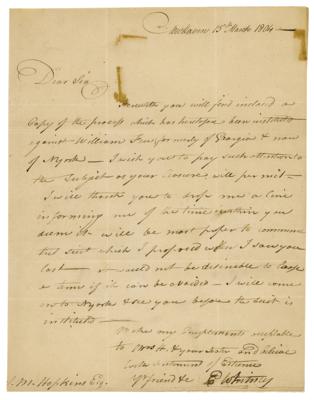 Newhaven 15th March 1804
Dear Sir
Herewith you will find inclosed a
Copy of the process which has heretofore been instituted
against William few formerly of Georgia & now
of NYork – I wish you to pay such attention to
the Subject as your leisure will permit –
I will thank you to drop me a line
informing me of the time when you
deem it will be most proper to commence
the suit which I proposed when I saw you
last – it would not be desirable to loose
a term if it can be avoided – I will come
on to NYork & see you before the suit is
instituted –
Make my Compliments acceptable
to Mrs H. & your Sister and believe
Sentiment of Esteem
Yr friend &c E Whitney
S. M. Hopkins Esq.